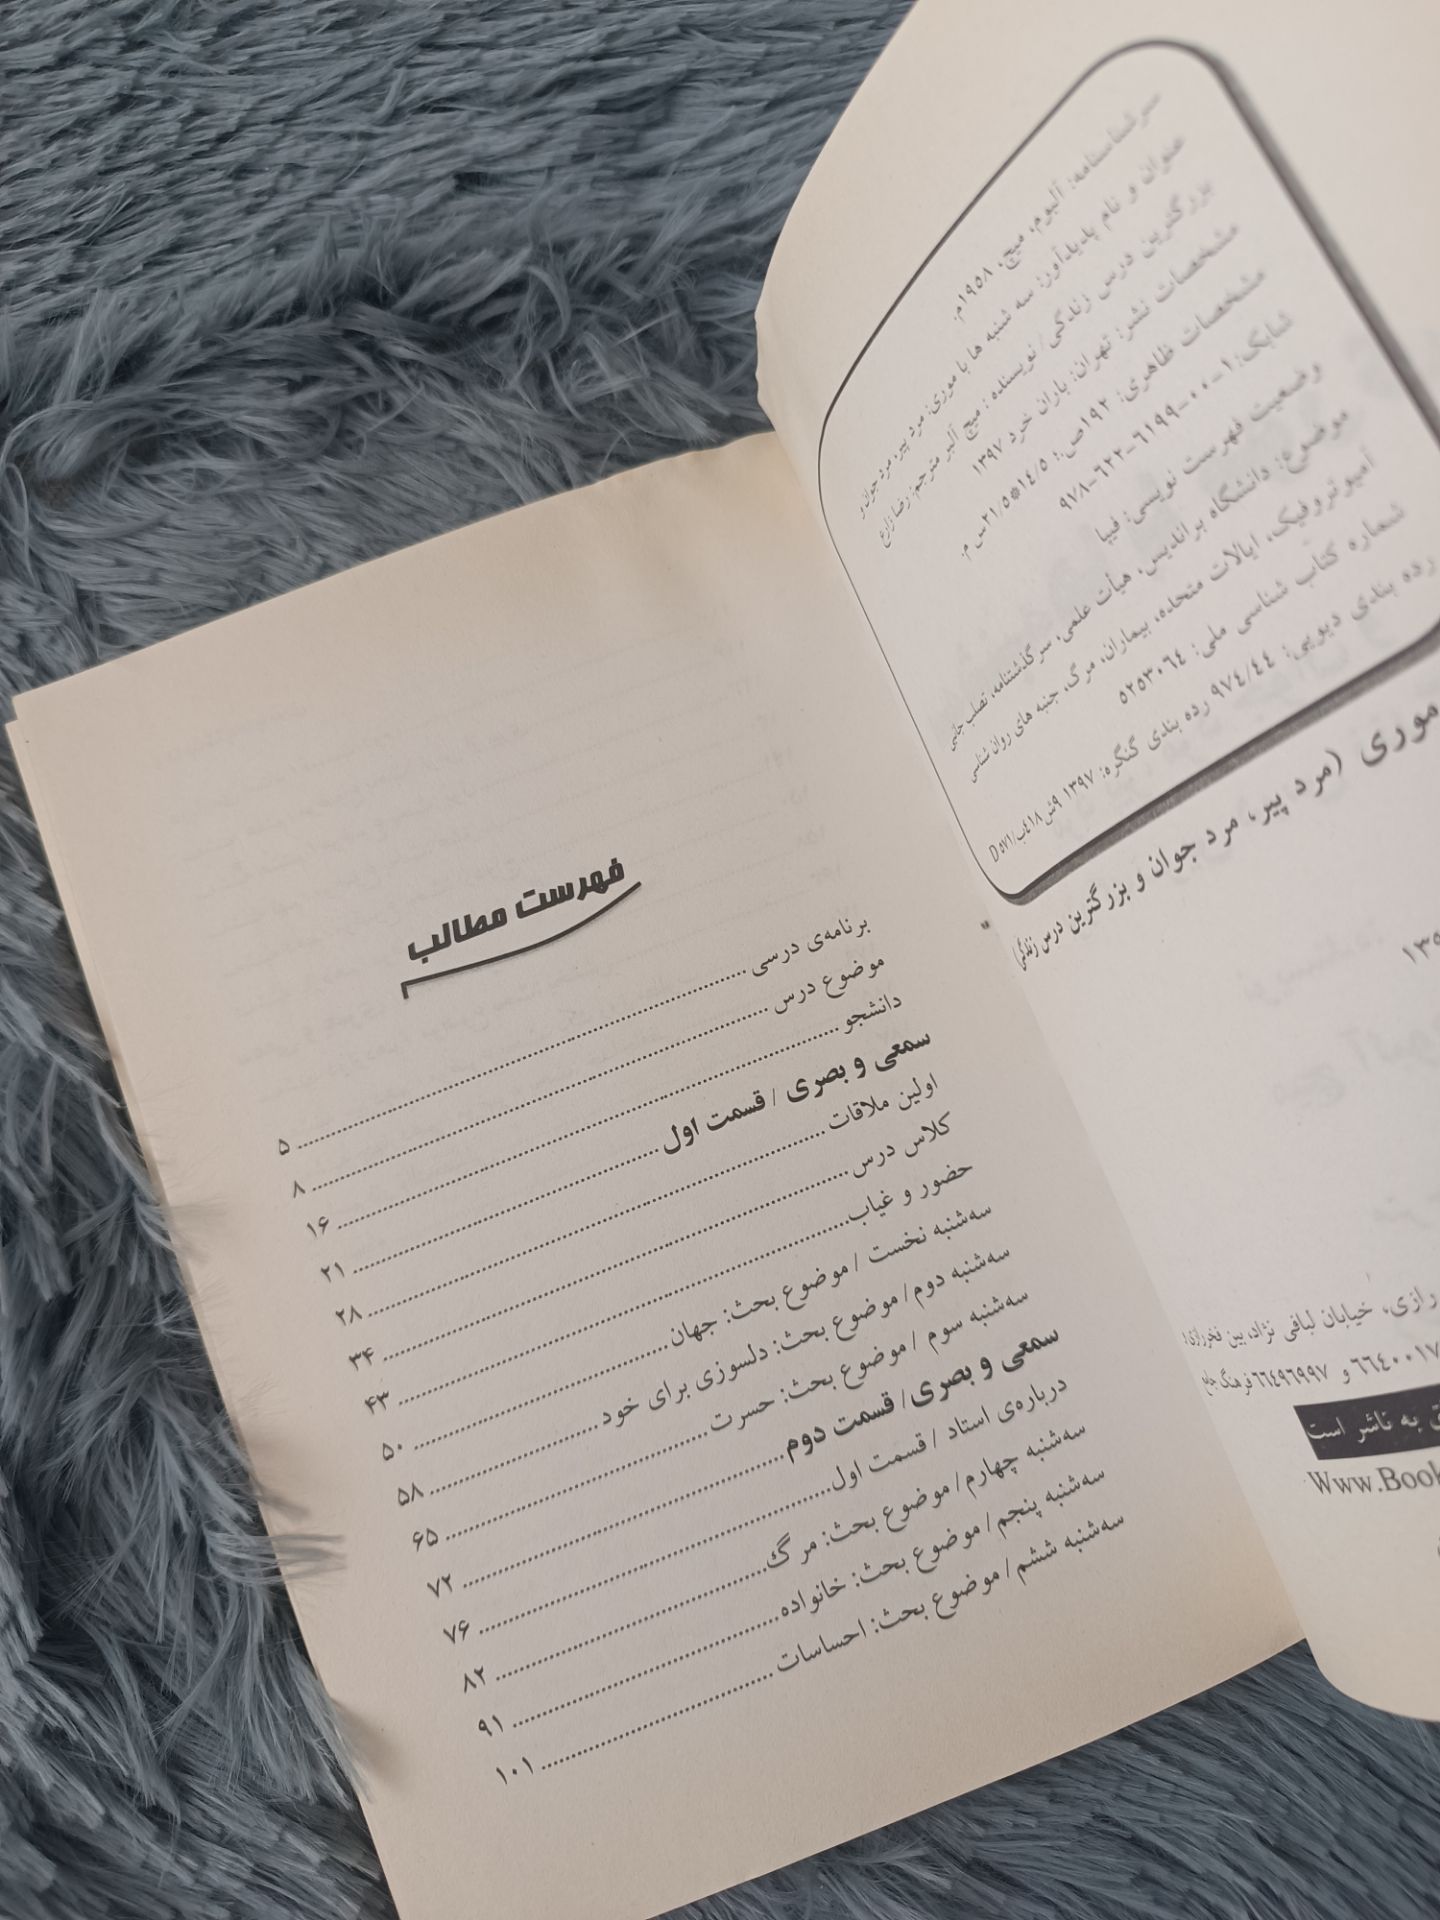 سرشناسنامه: آلبوم، میچ، ۱۹۵۸م.
عنوان و نام پدیدآور: سه شنبه ها با موری: مرد پیر، مرد جوان و
بزرگترین درس زندگی / نویسنده: میچ آلبر مترجم: رضا زارع
مشخصات نشر: تهران: باران خرد ۱۳۹۷
مشخصات ظاهری: ۱۹۲ص.؛ ۱۴/۵*۲۱/۵س م.
شابک: ۱-۰۰-۶۱۹۹-۶۲۲-۹۷۸
وضعیت فهرست نویسی: فیپا
موضوع: دانشگاه براندیس، هیأت علمی، سرگذشتنامه، تصلب جانبی
آمیوتروفیک، ایالات متحده، بیماران، مرگ، جنبه های روان شناسی
شماره کتاب شناسی ملی: ۵۲۵۳۰۶۴
رده بندی دیویی: ۹۷٤/٤٤ رده بندی کنگره: ۱۳۹۷
موری (مرد پیر، مرد جوان و بزرگترین درس زندگی)
رازی، خیابان لبافی نژاد، بین فخررازی/
۶٦٤۰۰۱۷ و ٦٦٤٩٦٩٩٧
به ناشر است
Www.Book
فهرست مطالب
برنامه‌ی درسی ۵
موضوع درس ۸
دانشجو ۱۶
سمعی و بصری / قسمت اول ۲۱
اولین ملاقات ۲۸
کلاس درس ۳۴
حضور و غیاب ۴۳
سه‌شنبه نخست / موضوع بحث: جهان ۵۰
سه‌شنبه دوم/ موضوع بحث: دلسوزی برای خود ۵۸
سه‌شنبه سوم / موضوع بحث: حسرت ۶۵
سمعی و بصری/ قسمت دوم ۷۲
درباره‌ی استاد / قسمت اول ۷۶
سه‌شنبه چهارم/ موضوع بحث: مرگ ۸۲
سه‌شنبه پنجم/ موضوع بحث: خانواده ۹۱
سه‌شنبه ششم/ موضوع بحث: احساسات ۱۰۱